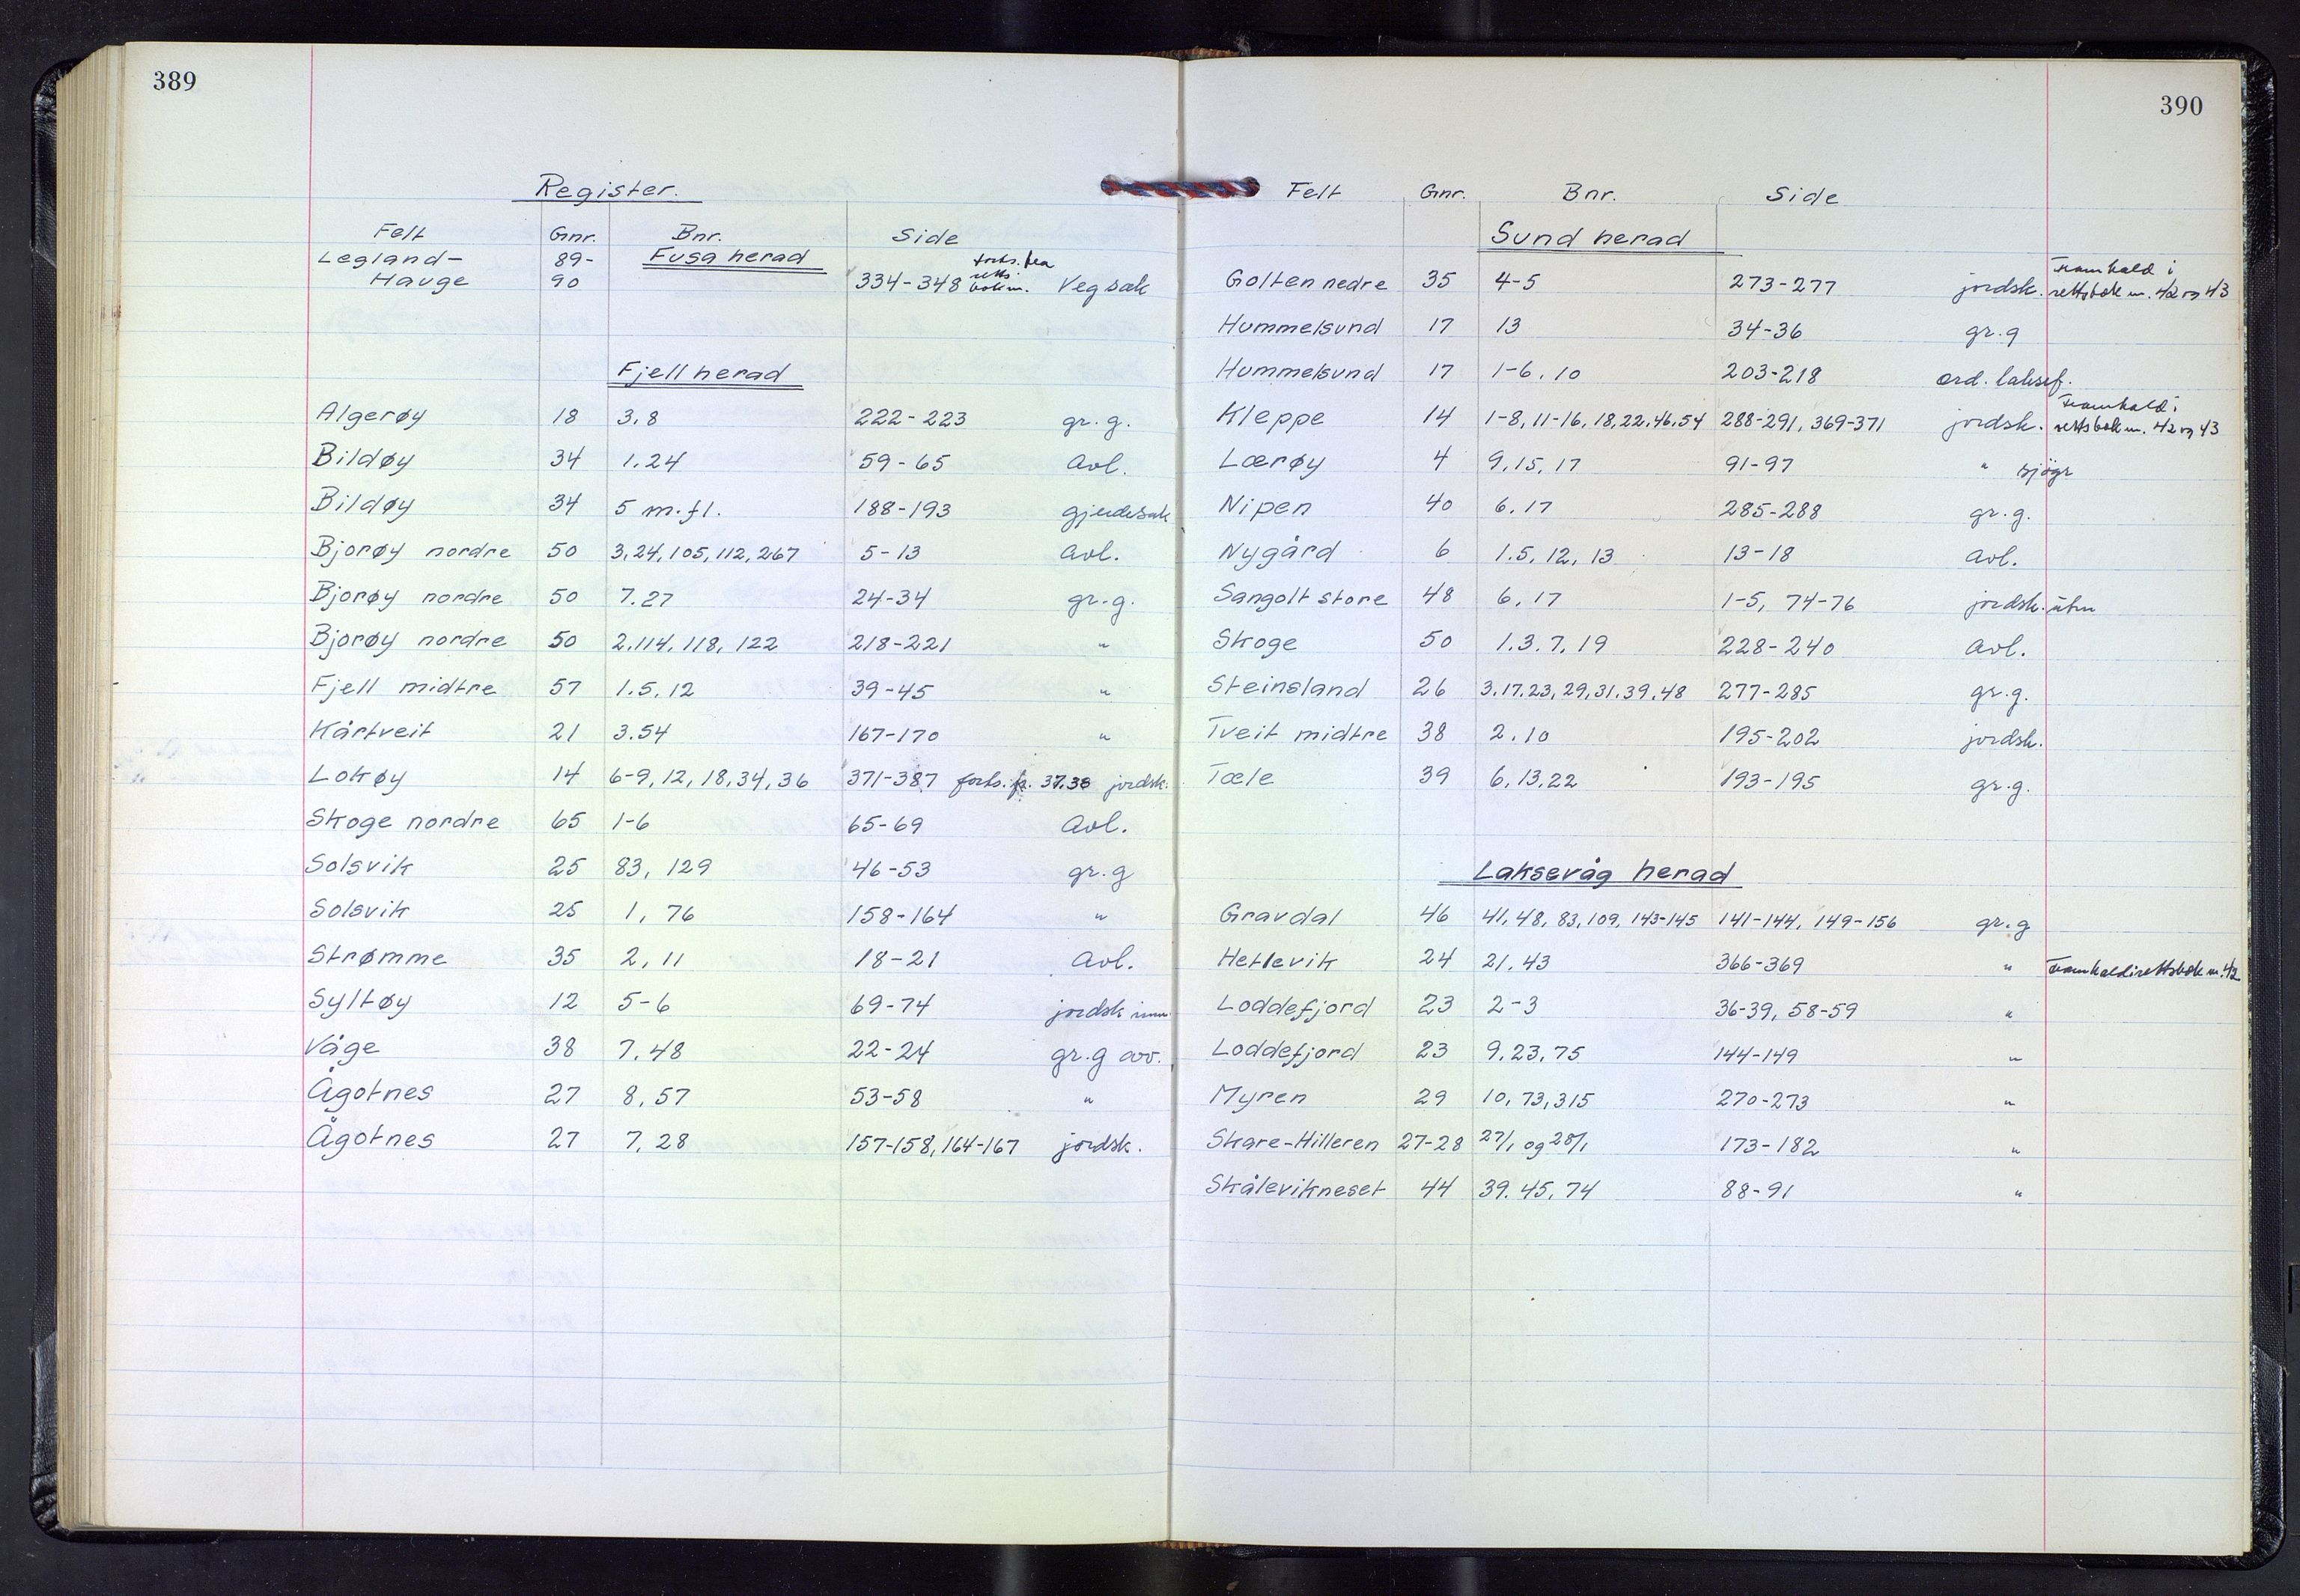 389
Register.
Felt Gnr. Bnr. Side
Legland- 89- Fusa herad forts. fra
Hauge 90 334-348 retts. bok nr. Vegsak
Fjell herad
Algerøy 18 3.8 222-223 gr.g.
Bildøy 34 1.24 59-65 Avl.
Bildøy 34 5 m.fl. 188-193 gjerdesak
Bjorøy nordre 50 3,24,105,112,267 5-13 Avl.
Bjorøy nordre 50 7.27 24-34 gr.g.
Bjorøy nordre 50 2.114, 118, 122 218-221 "
Fjell midtre 57 1.5.12 39-45 "
Kårtveit 21 3.54 167-170 "
Lokøy 14 6-9,12,18,34,36 371-387 forts. fr. 37.38 jordsk.
Skoge nordre 65 1-6 65-69 Avl.
Solsvik 25 83, 129 46-53 gr.g
Solsvik 25 1, 76 158-164 "
Strømme 35 2, 11 18-21 Avl.
Syltøy 12 5-6 69-74 jordsk inn
Våge 38 7.48 22-24 gr.g avv.
Ågotnes 27 8,57 53-58 "
Ågotnes 27 7.28 157-158, 164-167 jordsk.
390
Felt Gnr. Bnr. Side
Sund herad
Golten nedre 35 4-5 273-277 jordsk. Framhald i rettsbok nr. 42 og 43
Hummelsund 17 13 34-36 gr.g
Hummelsund 17 1-6.10 203-218 ord. laksef.
Kleppe 14 1-8, 11-16, 18,22,46,54 288-291, 369-371 jordsk. Framhald i rettsbok nr. 42 og 43
Lærøy 4 9,15,17 91-97 " sjøgr
Nipen 40 6.17 285-288 gr.g.
Nygård 6 1.5, 12, 13 13-18 Avl.
Sangolt store 48 6.17 1-5, 74-76 jordsk. utm
Skoge 50 1.3.7,19 228-240 Avl.
Steinsland 26 3.17.23,29,31,39,48 277-285 gr.g.
Tveit midtre 38 2.10 195-202 jordsk.
Tæle 39 6,13,22 193-195 gr.g.
Laksevåg herad
Gravdal 46 41,48, 83,109, 143-145 141-144, 149-156 gr.g
Hetlevik 24 21.43 366-369 " Framhald i rettsbok nr. 42
Loddefjord 23 2-3 36-39, 58-59 "
Loddefjord 23 9.23.75 144-149 "
Myren 29 10,73,315 270-273 "
Skare-Hilleren 27-28 27/1 og 28/1 173-182 "
Skålevikneset 44 39.45,74 88-91 "